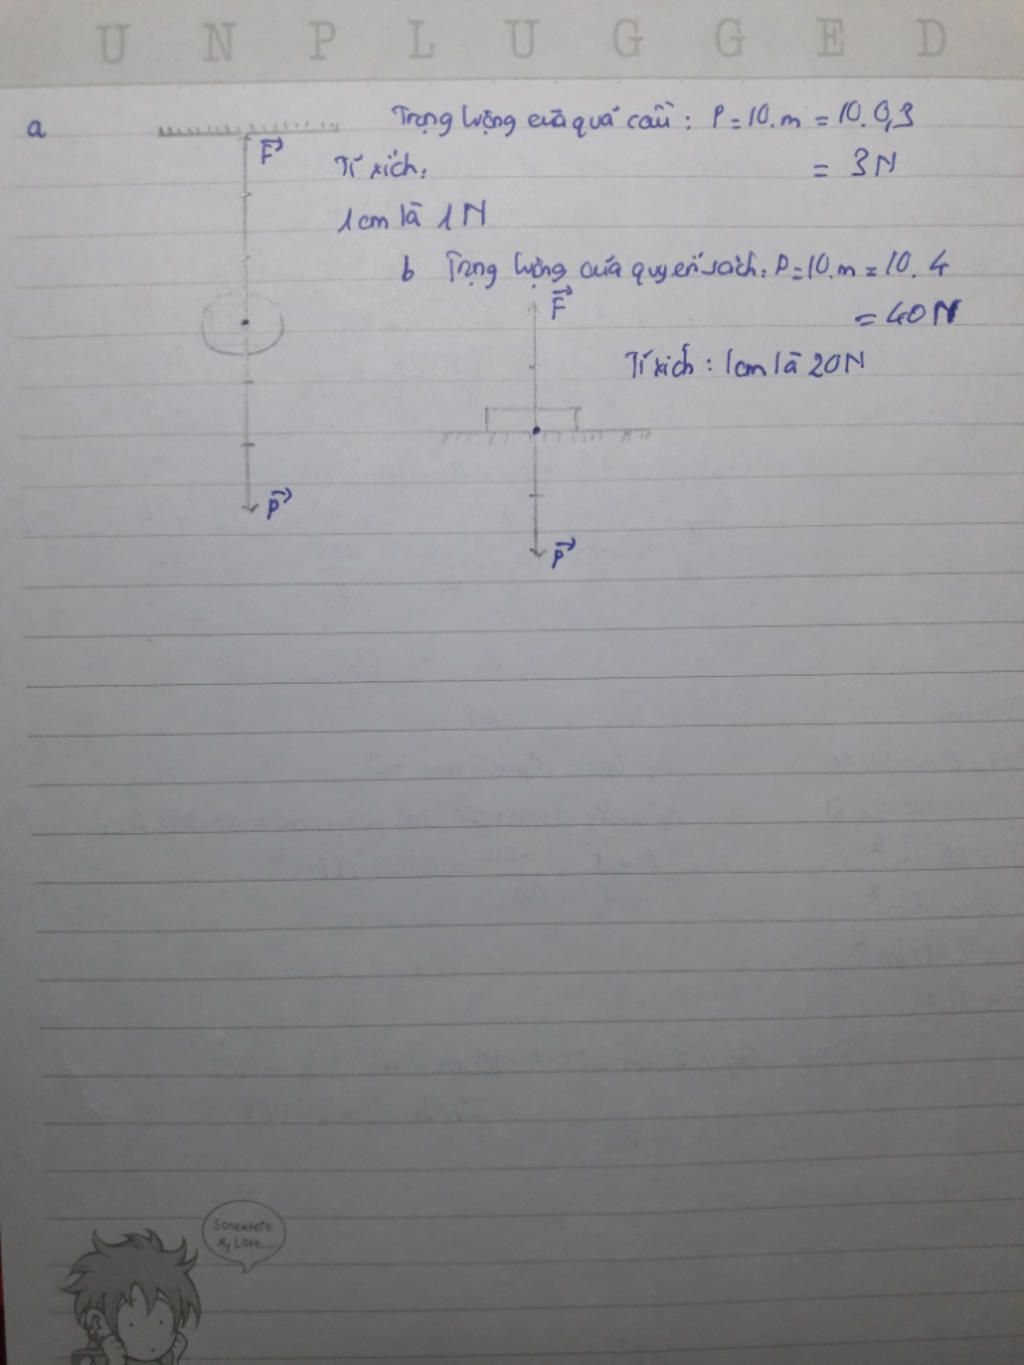 UNPLUGGED
a
Trọng lượng của quả cầu: P = 10.m = 10.0,3
F
Tỉ xích: = 3N
1cm là 1N
b Trọng lượng của quyển sách: P = 10.m = 10.4
F = 40N
Tỉ xích: 1cm là 20N
P
P
Somewhere
My Love.....